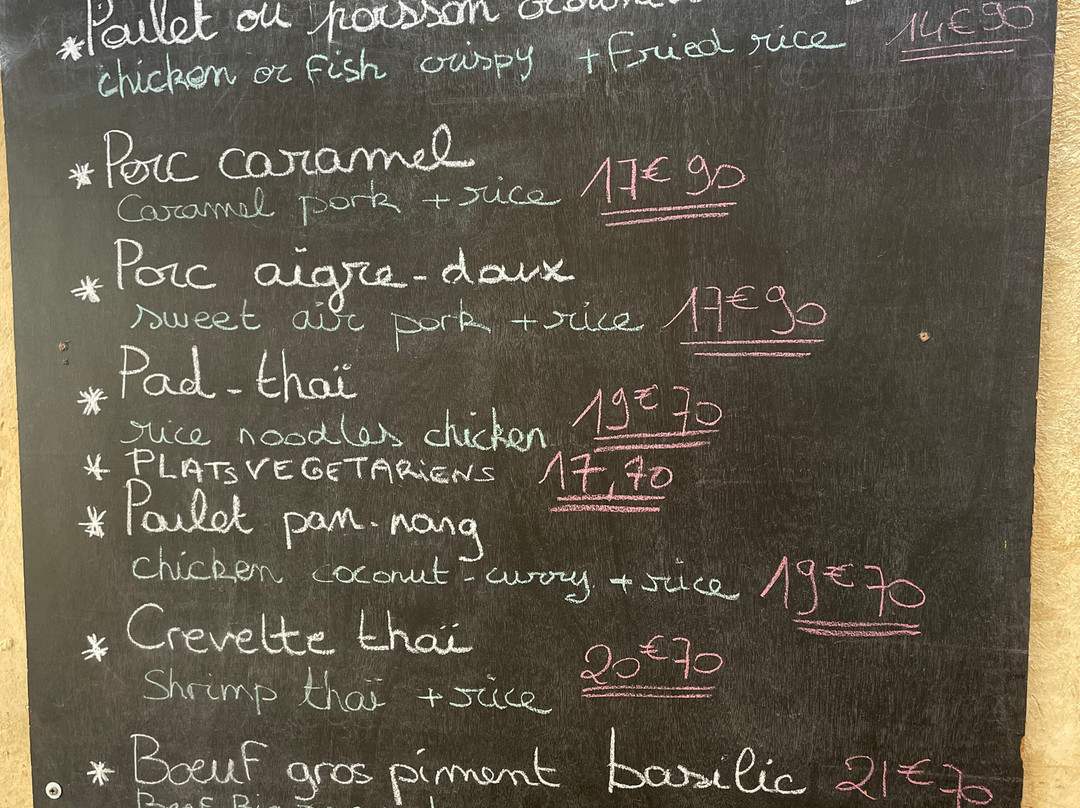 *Poulet ou poisson
14€90
chicken or fish crispy + fried rice
*Porc caramel
17€90
Caramel pork + rice
*Porc aigre-doux
sweet air pork + rice
17€90
*Pad-thaï
19€70
rice noodles chicken
*PLATS VEGETARIENS 17,70
*Poulet pan-nang
chicken coconut-curry + rice 19€70
*Crevette thaï
20€70
Shrimp thaï + rice
*Bœuf gros piment basilic 21€70